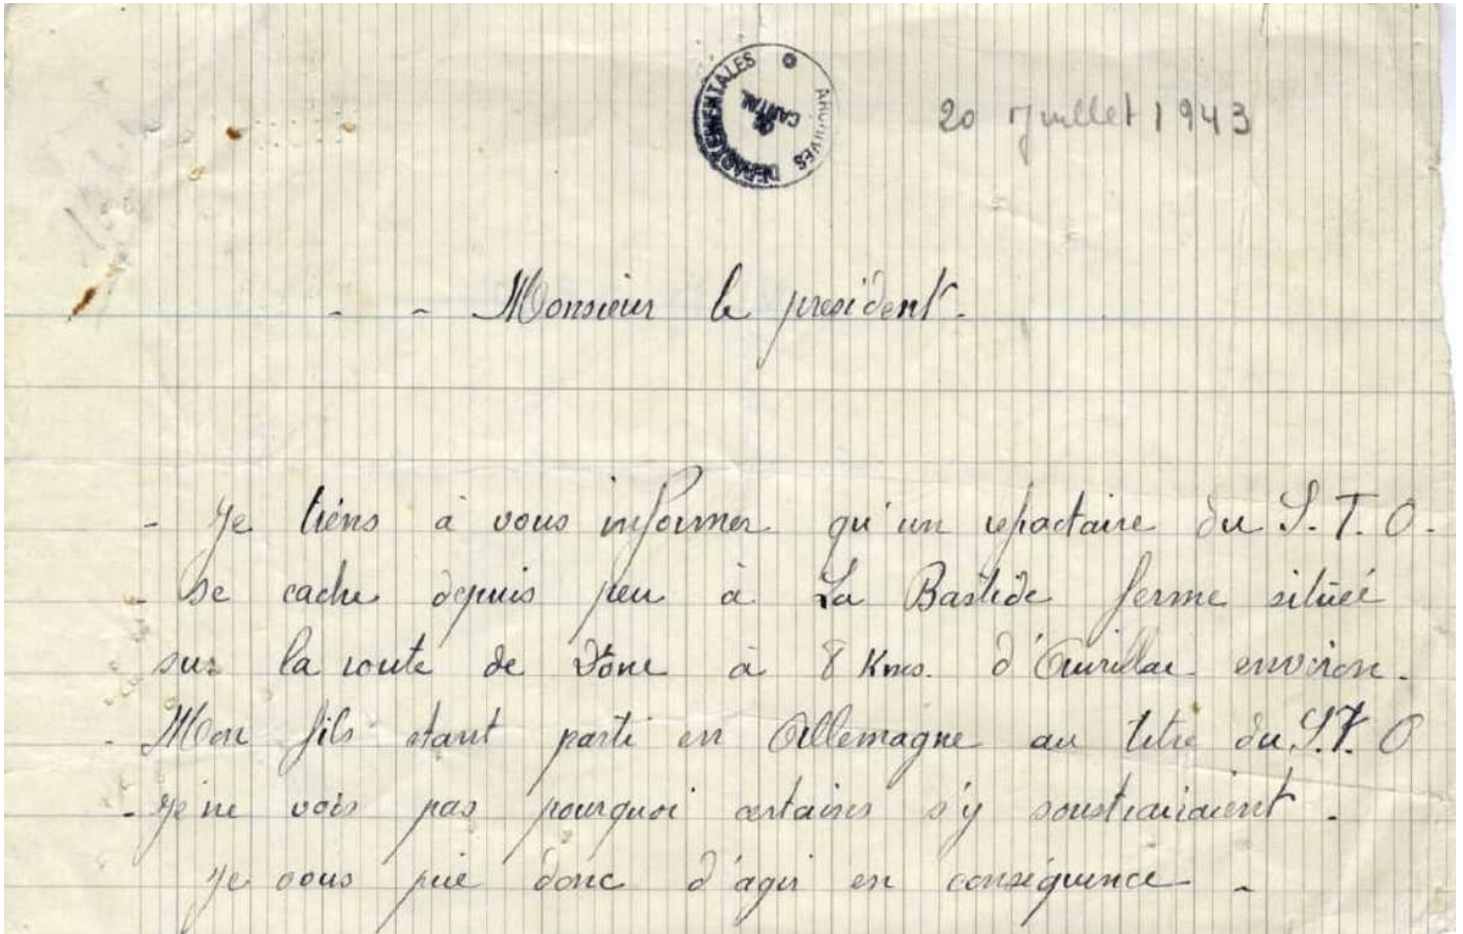 ARCHIVES DÉPARTEMENTALES
CANTAL
20 Juillet 1943
- - Monsieur le president.
- Je tiens à vous informer qu'un refractaire du S.T.O.
- se cache depuis peu à La Bastide ferme situèé
sur la route de à 8 Kms. d'Aurillac environ.
- Mon fils étant parti en Allemagne au titre du S.T.O
- Je ne vois pas pourquoi certains s'y soustrairaient.
Je vous prie donc d'agir en conséquence -